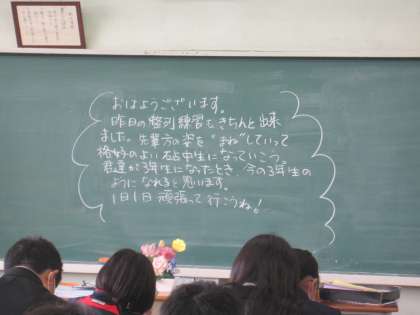 おはようございます。
昨日の整列練習もきちんと出来
ました。先輩方の姿を"まね"していって
格好のよい石中生になっていこう。
君達が3年生になったとき、今の3年生の
ようになれると思います。
1日1日頑張って行こうね!